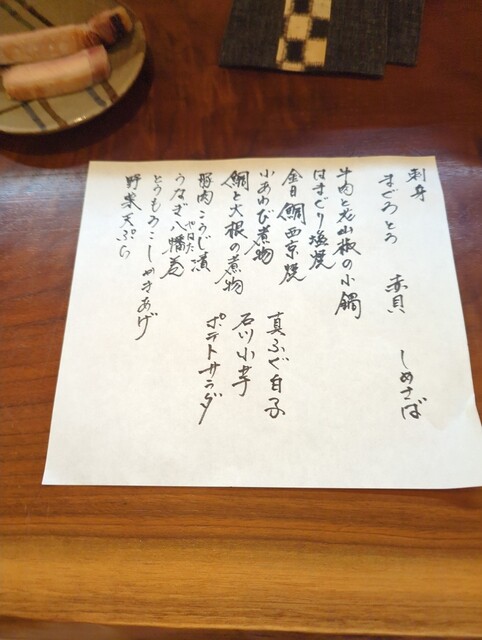 刺身
まぐろとろ 赤貝 しめさば
牛肉と花山椒の小鍋
はまぐり塩焼
金目鯛西京焼
小あわび煮物 真ふぐ白子
鯛と大根の煮物 石川小芋
豚肉こうじ漬 ポテトサラダ
うなぎ八幡巻
やはた
とうもろこしかきあげ
野菜天ぷら